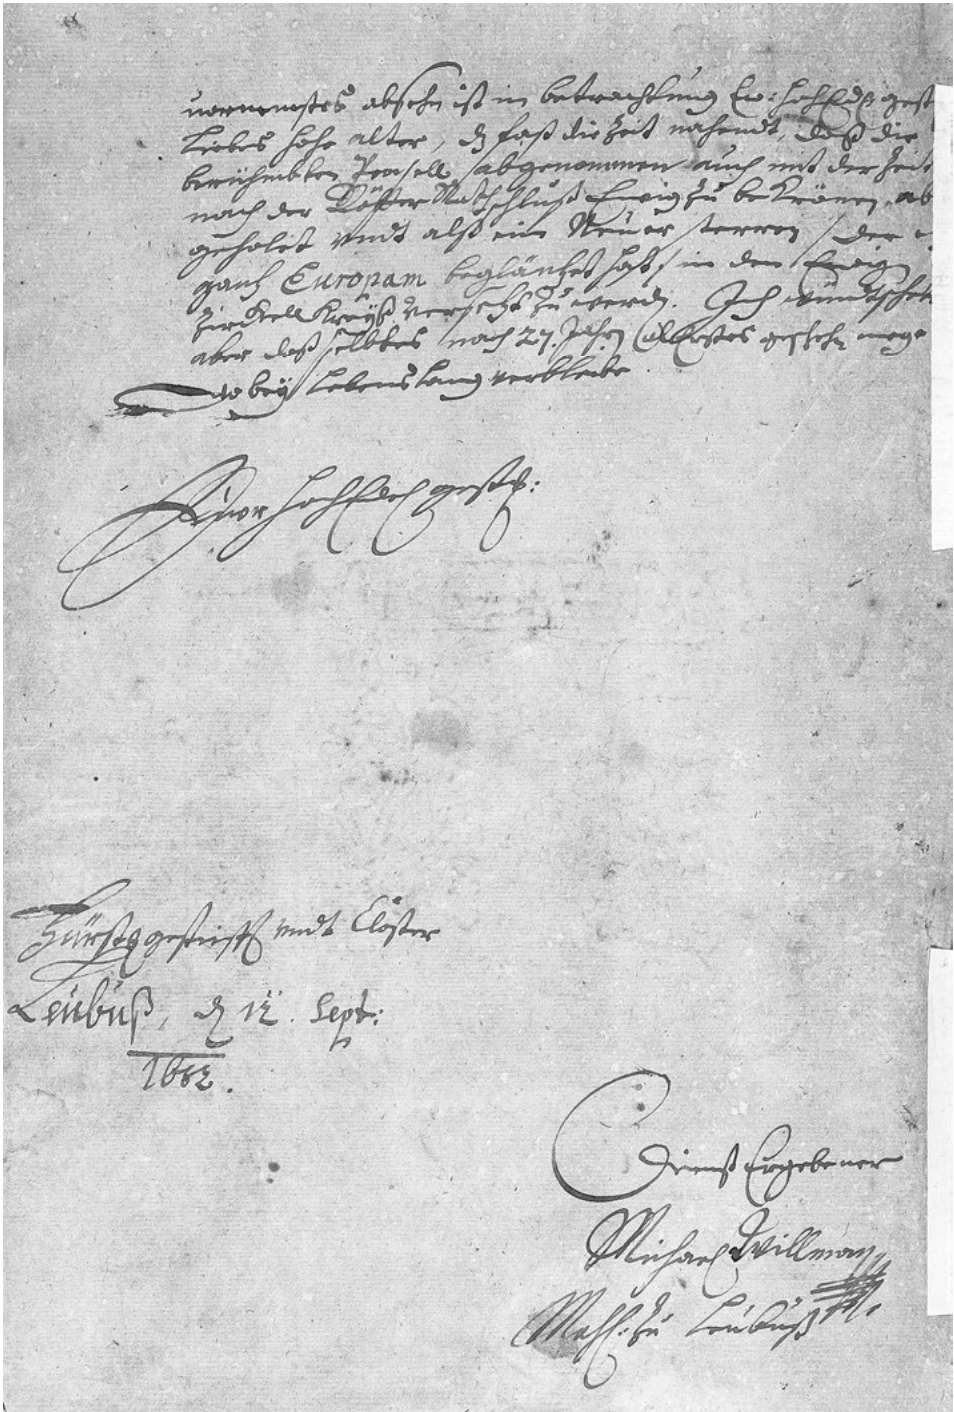 vornemstes absehn ist in betrachtung Ew: HochEdl gest
Liebes hohe alter, dz fast die Zeit nahendt, daß die
berühmbten Pensell abgenommen auch mit der Zeit
nach der Götter Rathschluß Ewig zu bekrönen, ab
geholet undt alß ein Neüer sterren / der
gantz Europam begläntzet hat / in den Ewign
Zirckell Kreyß versetzt zu werdn. Ich wündtsche
aber daß selbtes nach 27. Jahrn Erstes geschehn mege
wobey Lebenslang verbleibe.
Eüer HochEdel gestr:
Fürstl gestiefft undt Closter
Leübüß, d 12. Sept:
1682.
Dienst Ergebener
Michael Willman
Mahl: zu Leübüß